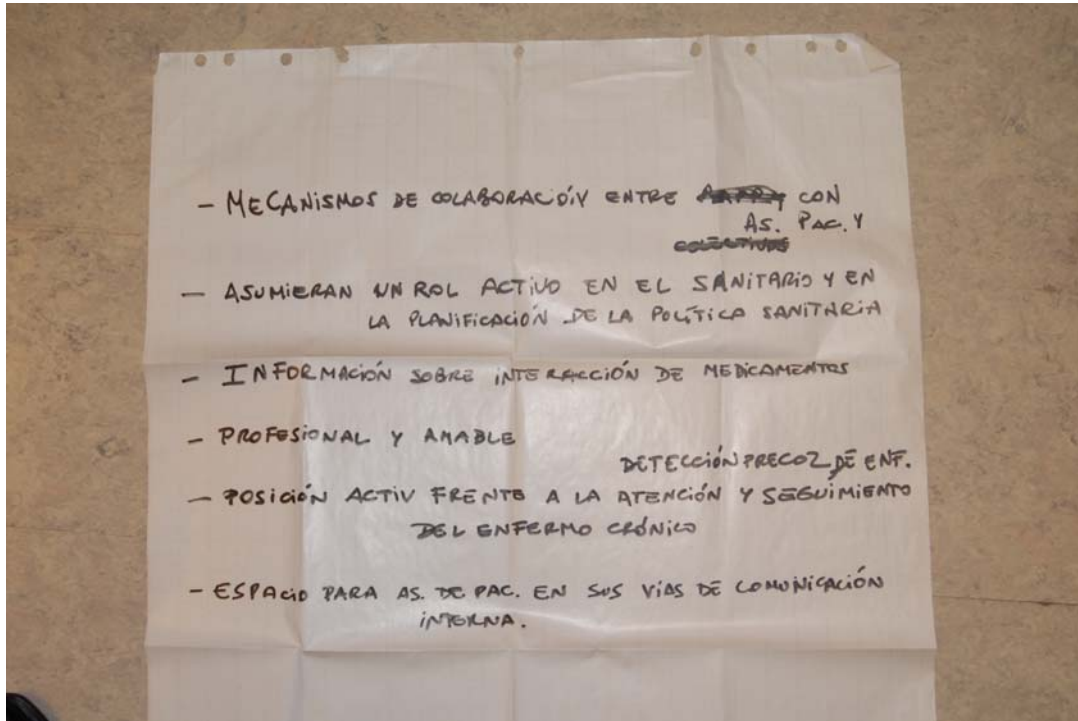 - MECANISMOS DE COLABORACIÓN ENTRE CON
AS. PAC. Y
COLECTIVOS
- ASUMIERAN UN ROL ACTIVO EN EL SANITARIO Y EN
LA PLANIFICACIÓN DE LA POLÍTICA SANITARIA
- INFORMACIÓN SOBRE INTERACCIÓN DE MEDICAMENTOS
- PROFESIONAL Y AMABLE
DETECCIÓN PRECOZ DE ENF.
- POSICIÓN ACTIV FRENTE A LA ATENCIÓN Y SEGUIMIENTO
DEL ENFERMO CRÓNICO
- ESPACIO PARA AS. DE PAC. EN SUS VÍAS DE COMUNICACIÓN
INTERNA.